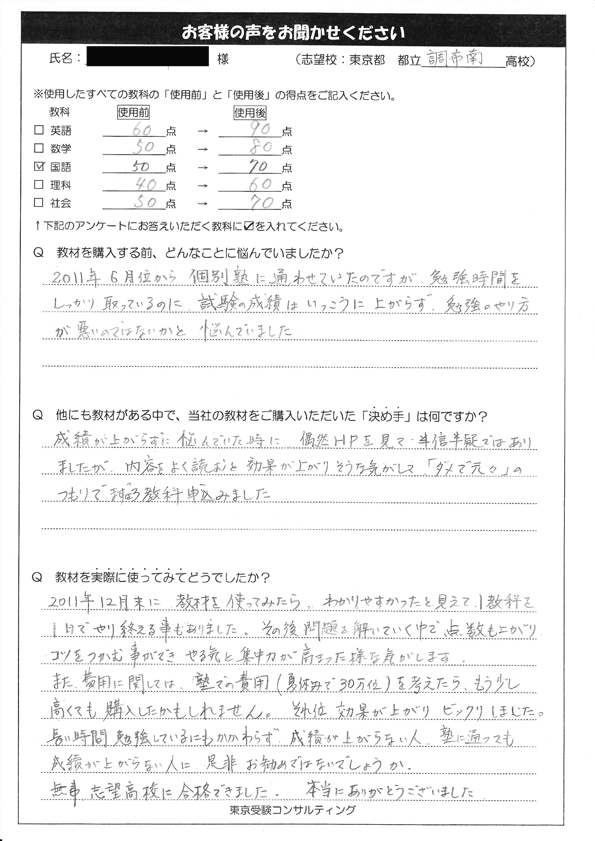 お客様の声をお聞かせください
氏名： 様 （志望校：東京都 都立 調布南 高校）
※使用したすべての教科の「使用前」と「使用後」の得点をご記入ください。
教科 使用前 使用後
□ 英語 60点 → 90点
□ 数学 50点 → 80点
☑ 国語 50点 → 70点
□ 理科 40点 → 60点
□ 社会 50点 → 70点
↑下記のアンケートにお答えいただく教科に☑を入れてください。
Q 教材を購入する前、どんなことに悩んでいましたか？
2011年6月位から 個別塾に通わせていたのですが、勉強時間を
しっかり取っているのに、試験の成績はいっこうに上がらず、勉強のやり方
が悪いのではないかと 悩んでいました
Q 他にも教材がある中で、当社の教材をご購入いただいた「決め手」は何ですか？
成績が上がらずに悩んでいた時に 偶然HPを見て、半信半疑ではあり
ましたが、内容をよく読むと効果が上がりそうな気がして「ダメで元々」の
つもりで まず 教科申込みました
Q 教材を実際に使ってみてどうでしたか？
2011年12月末に 教材を使ってみたら、わかりやすかったと見えて、1教科を
1日でやり終える事もありました、その後問題を解いていく中で点数も上がり
コツをつかむ事ができ やる気と集中力が高まった様な気がします。
また、費用に関しては、塾での費用（夏休みで30万位）を考えたら、もう少し
高くても購入したかもしれません。それ位 効果が上がり ビックリしました。
長い時間勉強しているにもかかわらず、成績が上がらない人、塾に通っても
成績が上がらない人に、是非お勧めではないでしょうか。
無事 志望高校に合格できました。 本当にありがとうございました
東京受験コンサルティング